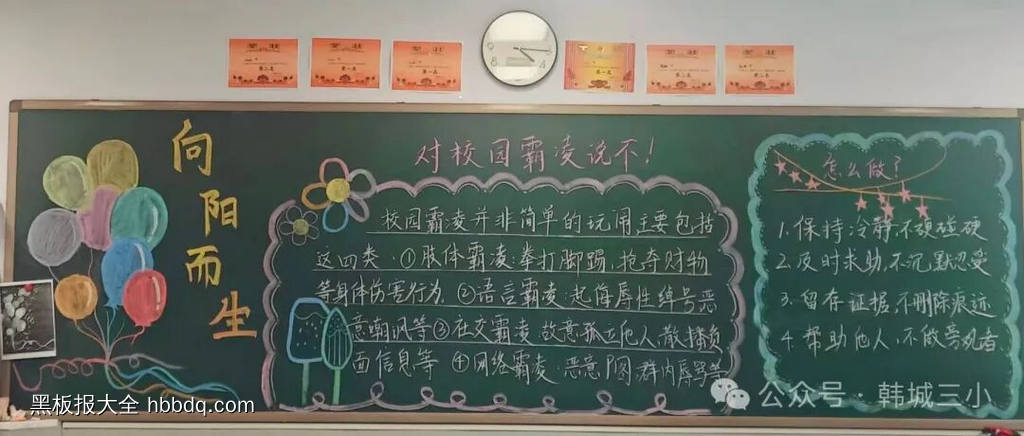 向阳而生
对校园霸凌说不!
校园霸凌并非简单的玩闹主要包括
这四类·①肢体霸凌:拳打脚踢、抢夺财物
等身体伤害行为.②语言霸凌:起侮辱性绰号恶
意嘲讽等③社交霸凌 故意孤立他人,散播负
面信息等 ④网络霸凌·恶意P图 群内辱骂等
怎么做?
1.保持冷静,不硬碰硬
2.及时求助,不沉默忍受
3.留存证据,不删除痕迹
4.帮助他人,不做旁观者
黑板报大全 hbbdq.com
公众号·韩城三小